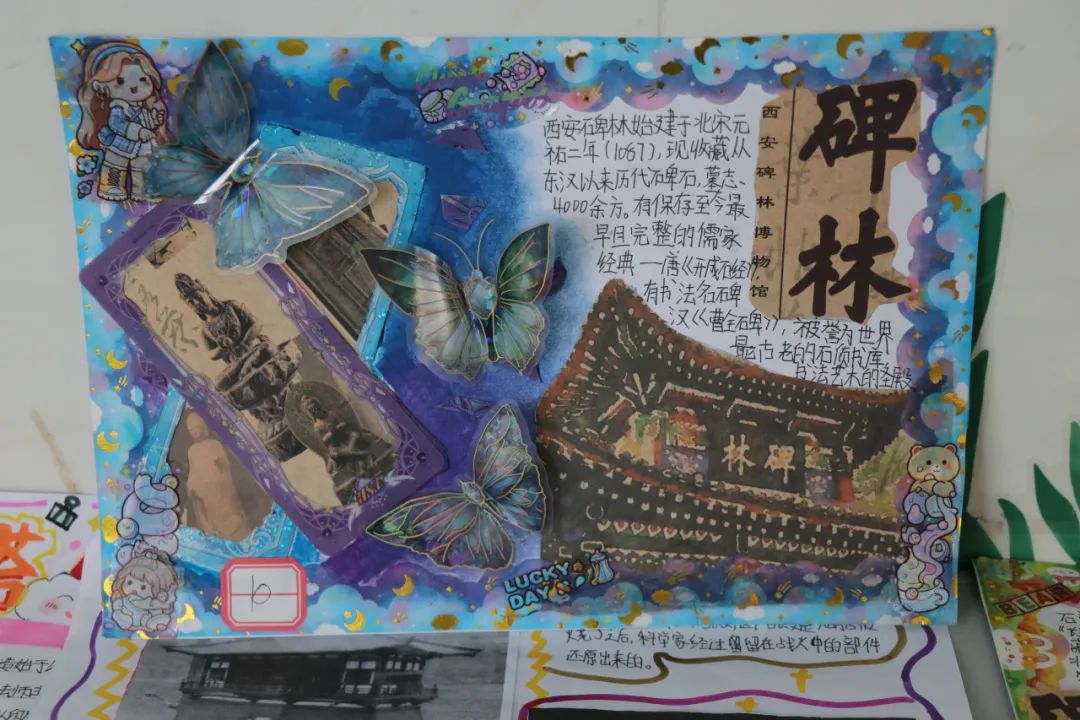 碑林
西安碑林博物馆
西安碑林始建于北宋元
祐二年(1067),现收藏从
东汉以来历代碑石,墓志、
4000余方。有保存至今最
早且完整的儒家
经典—唐《开成石经》,
有书法名碑
汉《曹全碑》,被誉为世界
最古老的石质书库
书法艺术的圣殿
林碑
LUCKY
DAY
b
之后,科学家经过留在战火中的部件
还原出来的。
BEAR